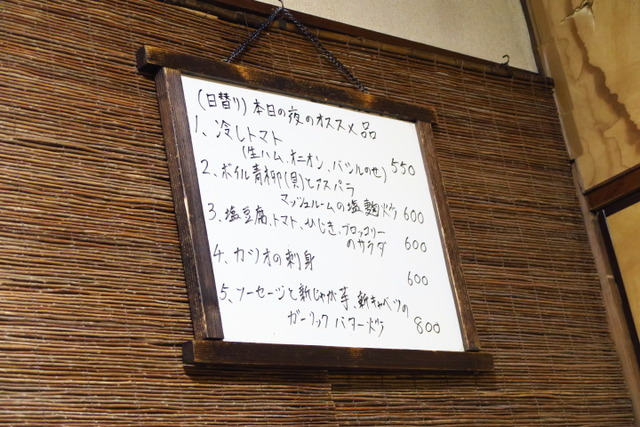 (日替り)本日の夜のオススメ品
1、冷しトマト
(生ハム、オニオン、バジルのせ) 550
2、ボイル青柳(貝)とアスパラ
マッシュルームの塩麹炒 600
3、塩豆腐、トマト、ひじき、ブロッコリー
のサラダ 600
4、カツオの刺身
600
5、ソーセージと新じゃが芋、新キャベツの
ガーリックバター炒 800